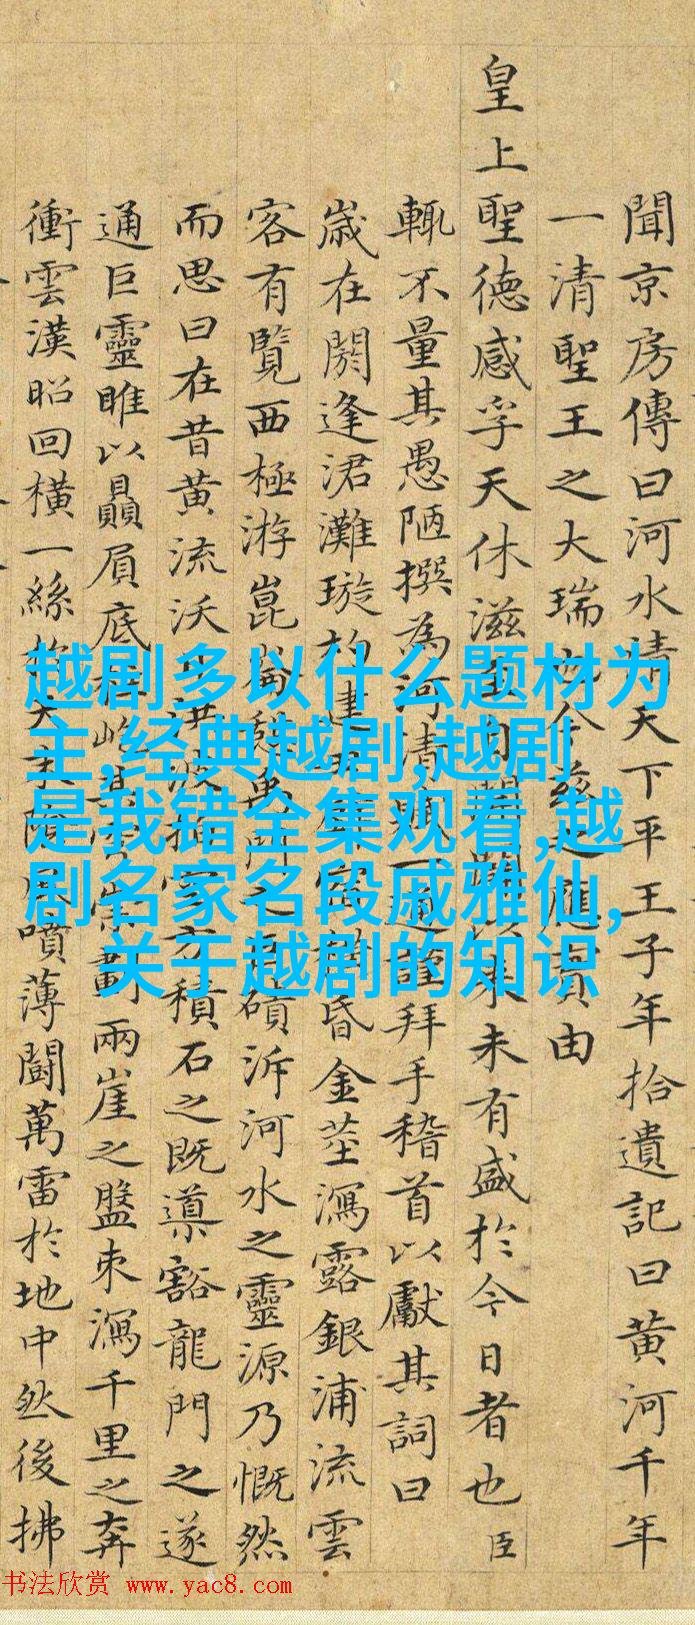 聞京房傳曰河水清天下平王子年拾遺記曰黃河千年
一清聖王之大瑞也今茲之應實由
皇上聖德感孚天休滋以來未有盛於今日者也臣
輒不量其愚陋撰為河清賦一通謹拜手稽首以獻其詞曰
歲在閼逢涒灘璇杓建昏金莖瀉露銀浦流雲
客有覽西極游崑崙磧泝河水之靈源乃慨然
而思曰在昔黃流沃洪波方積石之既導豁龍門之遂
通巨靈雎以贔屓底柱屹其兩崖之盤束瀉千里之奔
衝雲漢昭回橫一絲噴薄鬭萬雷於地中然後拂
越剧多以什么题材为
主,经典越剧,越剧
是我错全集观看,越
剧名家名段戚雅仙,
关于越剧的知识
书法欣赏 www.yac8.com